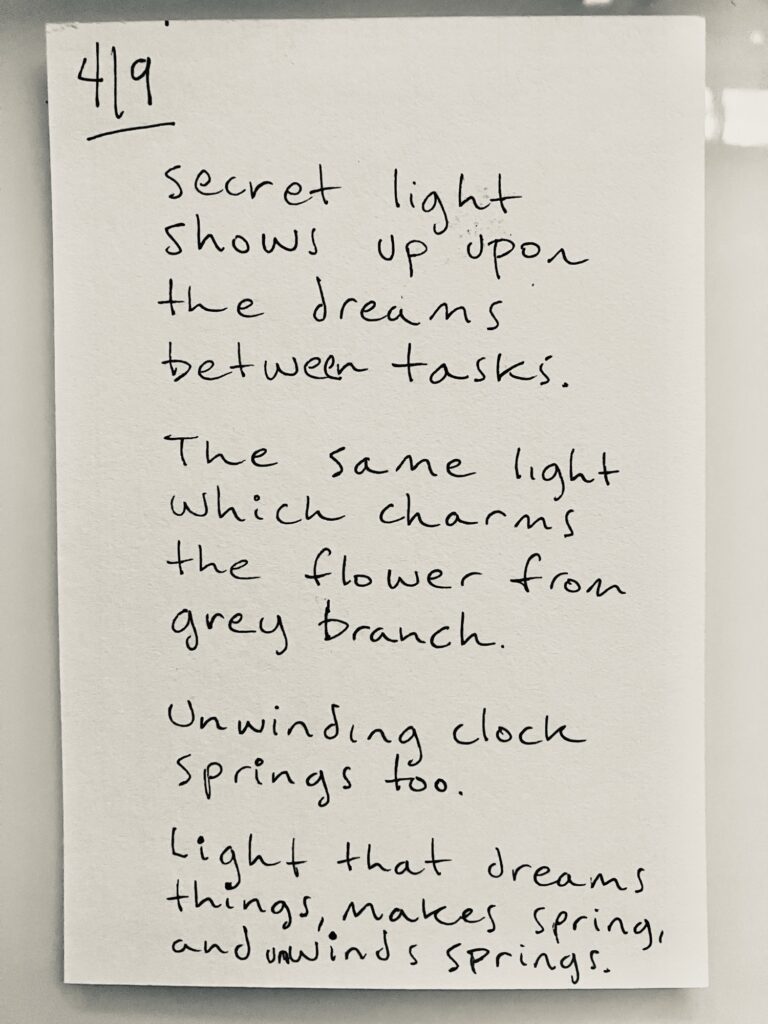 4/9
secret light
shows up upon
the dreams
between tasks.
The same light
which charms
the flower from
grey branch.
Unwinding clock
springs too.
Light that dreams
things, makes spring,
and unwinds springs.